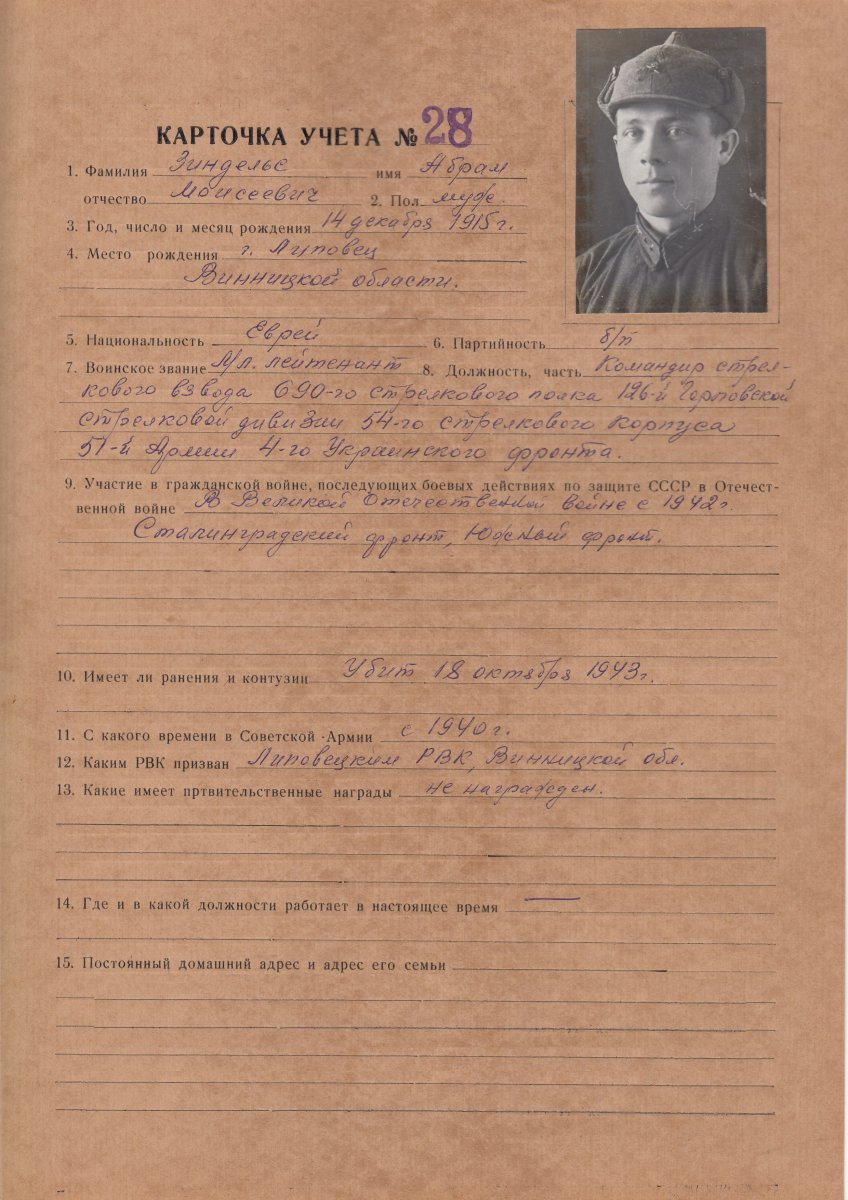 КАРТОЧКА УЧЕТА № 28
1. Фамилия Зиндельс имя Абрам
отчество Моисеевич 2. Пол муж.
3. Год, число и месяц рождения 14 декабря 1915 г.
4. Место рождения г. Липовец
Винницкой области.
5. Национальность Еврей 6. Партийность б/п
7. Воинское звание Мл. лейтенант 8. Должность, часть Командир стрел-
кового взвода 690-го стрелкового полка 126-й Горловской
стрелковой дивизии 54-го стрелкового корпуса
51-й Армии 4-го Украинского фронта.
9. Участие в гражданской войне, последующих боевых действиях по защите СССР в Отечест-
венной войне В Великой Отечественной войне с 1942 г.
Сталинградский фронт, Южный фронт.
10. Имеет ли ранения и контузии Убит 18 октября 1943 г.
11. С какого времени в Советской Армии с 1940 г.
12. Каким РВК призван Липовецким РВК, Винницкой обл.
13. Какие имеет пртвительственные награды не награжден.
14. Где и в какой должности работает в настоящее время —
15. Постоянный домашний адрес и адрес его семьи